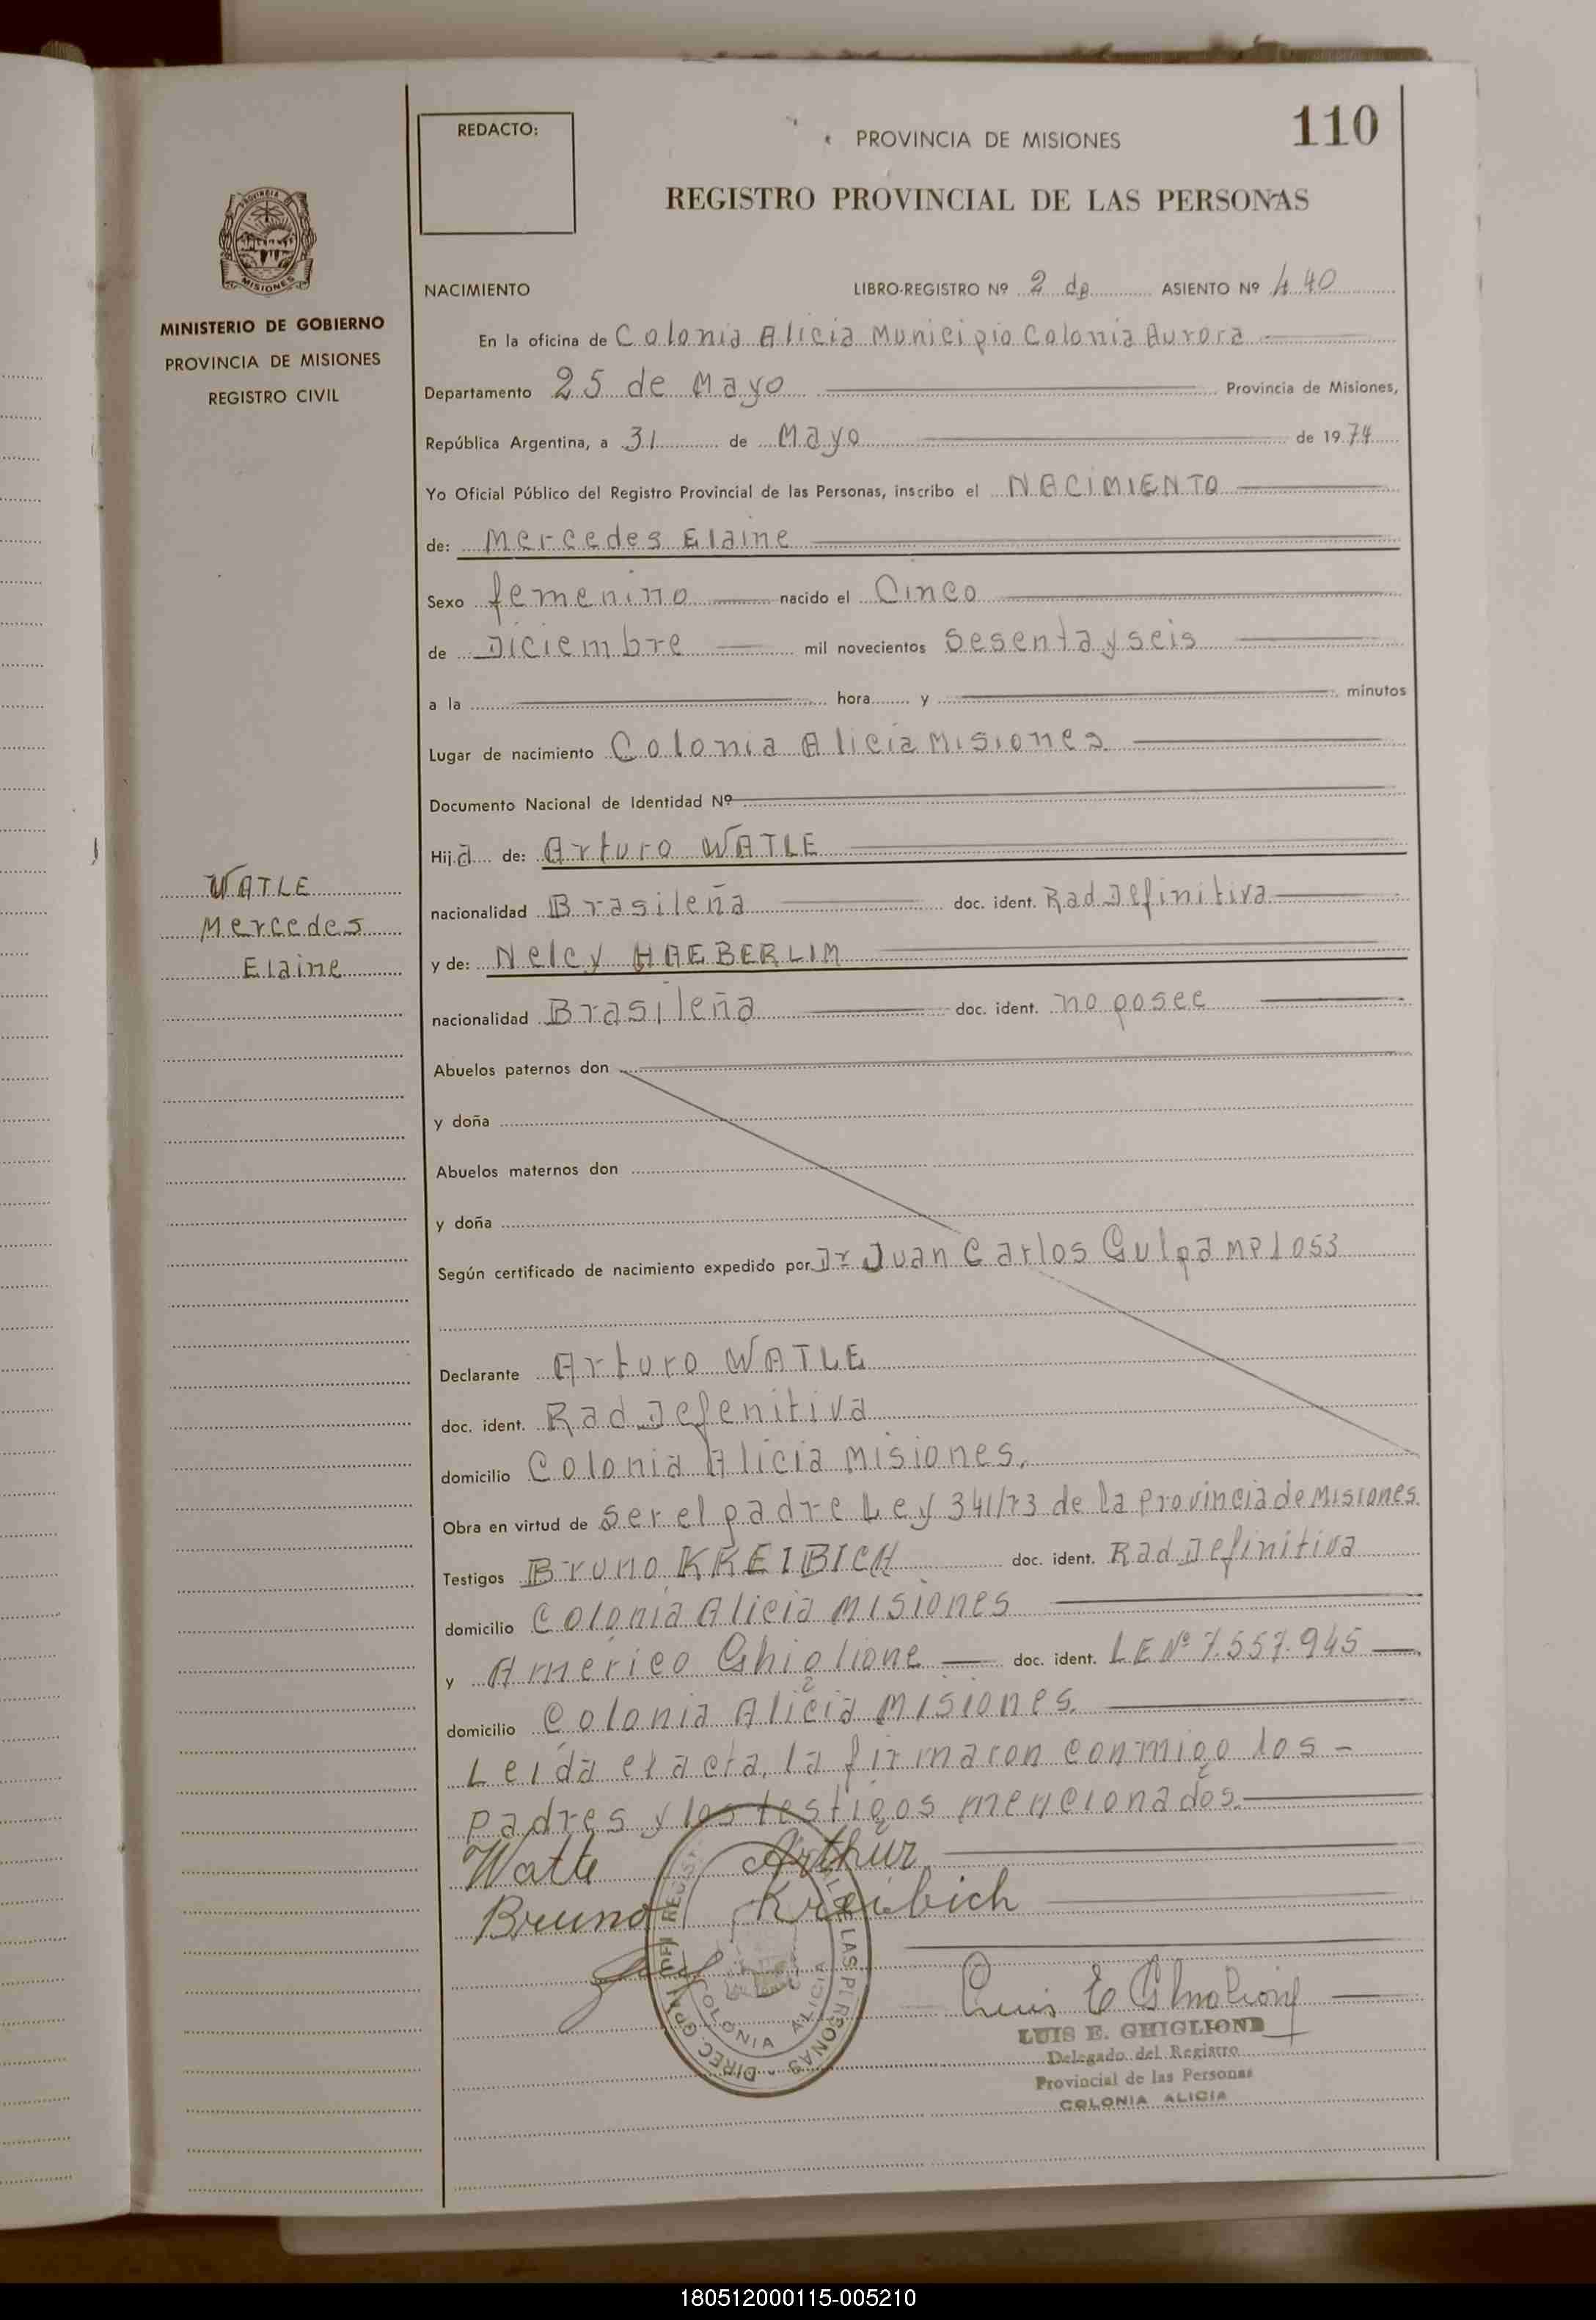 REDACTO:
PROVINCIA DE MISIONES
110
REGISTRO PROVINCIAL DE LAS PERSONAS
MISIONES
MINISTERIO DE GOBIERNO
PROVINCIA DE MISIONES
REGISTRO CIVIL
NACIMIENTO LIBRO-REGISTRO Nº 2 dp ASIENTO Nº 440
En la oficina de Colonia Alicia Municipio Colonia Aurora
Departamento 25 de Mayo Provincia de Misiones,
República Argentina, a 31 de Mayo de 1974
Yo Oficial Público del Registro Provincial de las Personas, inscribo el NACIMIENTO
de: Mercedes Elaine
Sexo femenino nacido el Cinco
de Diciembre mil novecientos sesenta y seis
a la hora y minutos
Lugar de nacimiento Colonia Alicia Misiones
Documento Nacional de Identidad Nº
Hija de: Arturo WATLE
WATLE
Mercedes
Elaine
nacionalidad Brasileña doc. ident. Rad Definitiva
y de: Nelcy HAEBERLIM
nacionalidad Brasileña doc. ident. no posee
Abuelos paternos don
y doña
Abuelos maternos don
y doña
Según certificado de nacimiento expedido por Dr Juan Carlos Gulpa MP1053
Declarante Arturo WATLE
doc. ident. Rad Defenitiva
domicilio Colonia Alicia Misiones.
Obra en virtud de ser el padre Ley 341/73 de la Provincia de Misiones
Testigos Bruno KREIBICH doc. ident. Rad Definitiva
domicilio Colonia Alicia Misiones
y Americo Ghiglione doc. ident. LE Nº 7.557.945
domicilio Colonia Alicia Misiones.
Leida el acta, la firmaron conmigo los
padres y los testigos mencionados.
Watle Arthur
Bruno Kreibich
DIREC. GRAL. DEL REGIST. DE LAS PERSONAS
COLONIA ALICIA
Luis E Ghiglione
LUIS E. GHIGLIONE
Delegado del Registro
Provincial de las Personas
COLONIA ALICIA
180512000115-005210